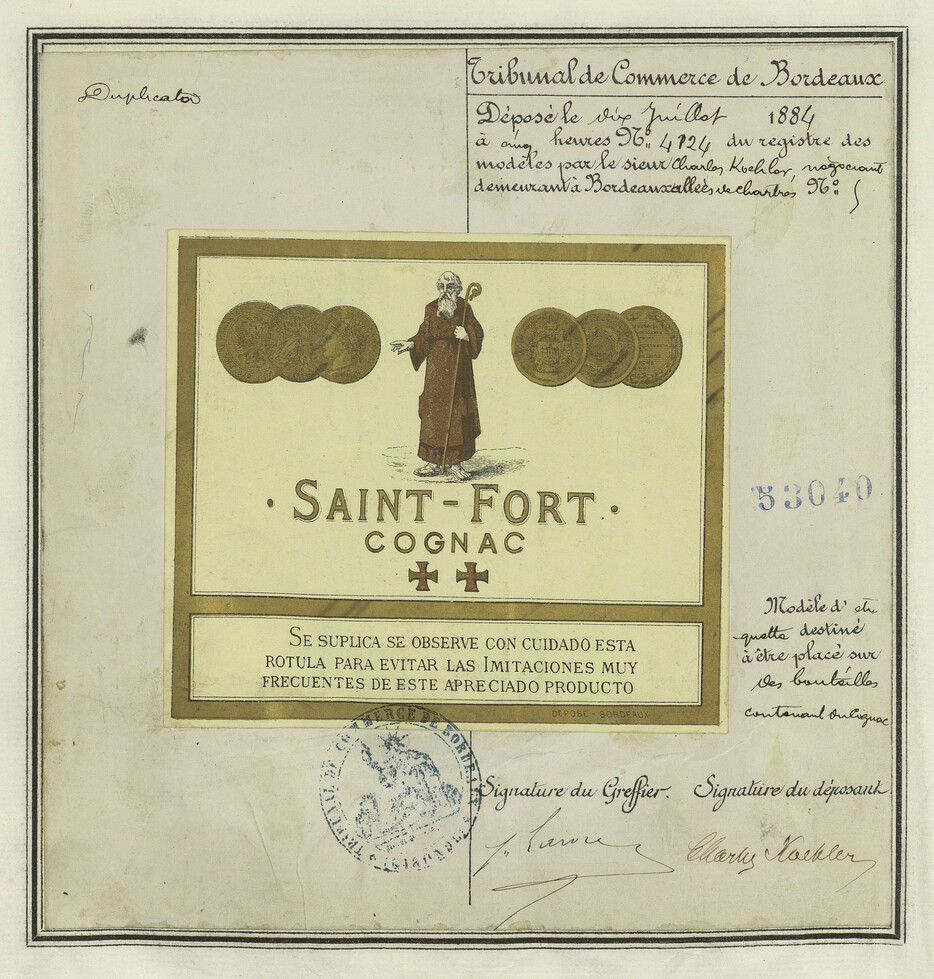 Duplicata
Tribunal de Commerce de Bordeaux
Déposé le dix Juillet 1884
à cinq heures No. 4124 du registre des
modèles par le sieur Charles Koehler, négociant
demeurant à Bordeaux allées de Chartres No. 5
SAINT-FORT
COGNAC
53040
Modèle d' eti
quette destiné
à être placé sur
des bouteilles
contenant du Cognac
SE SUPLICA SE OBSERVE CON CUIDADO ESTA
ROTULA PARA EVITAR LAS IMITACIONES MUY
FRECUENTES DE ESTE APRECIADO PRODUCTO
DÉPOSÉ - BORDEAUX
TRIBUNAL DE COMMERCE DE BORDEAUX
Signature du Greffier. Signature du déposant.
Charles Koehler